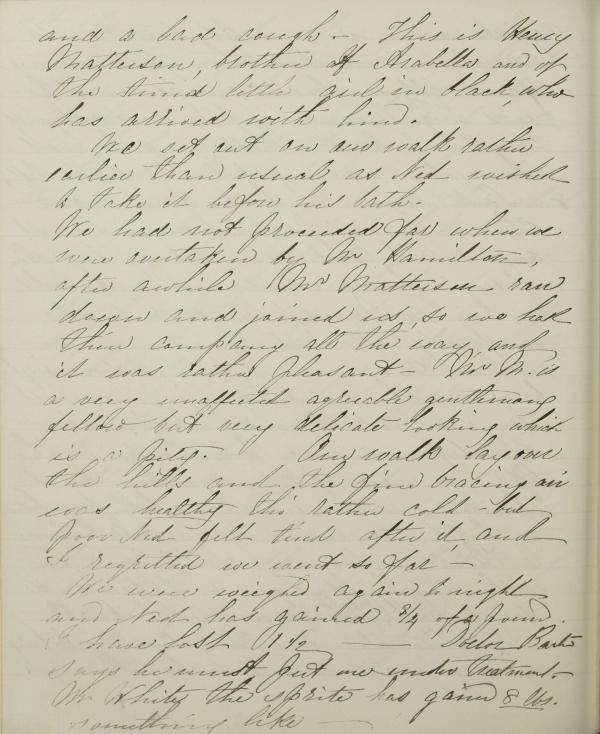 and a bad cough - This is Henry
Matterson, brother of Arabella and of
the timid little girl in black, who
has arrived with him.
We set out on our walk rather
earlier than usual as Ned wished
to take it before his bath.
We had not proceeded far when we
were overtaken by Mr Hamilton,
after awhile Mr Matterson ran
down and joined us, so we had
their company all the way and
it was rather pleasant - Mr M. is
a very unaffected agreeable gentlemany
fellow but very delicate looking which
is a pity. Our walk lay over
the hills and the fine bracing air
was healthy tho' rather cold - but
poor Ned felt tired after it, and
I regretted we went so far -
We were weighed again to night
and Ned has gained 3/4 of a pound.
I have lost 1 1/2 — Doctor
says he must put me under Treatment -
Mr White the sprite has gained 8 lbs.
something like —